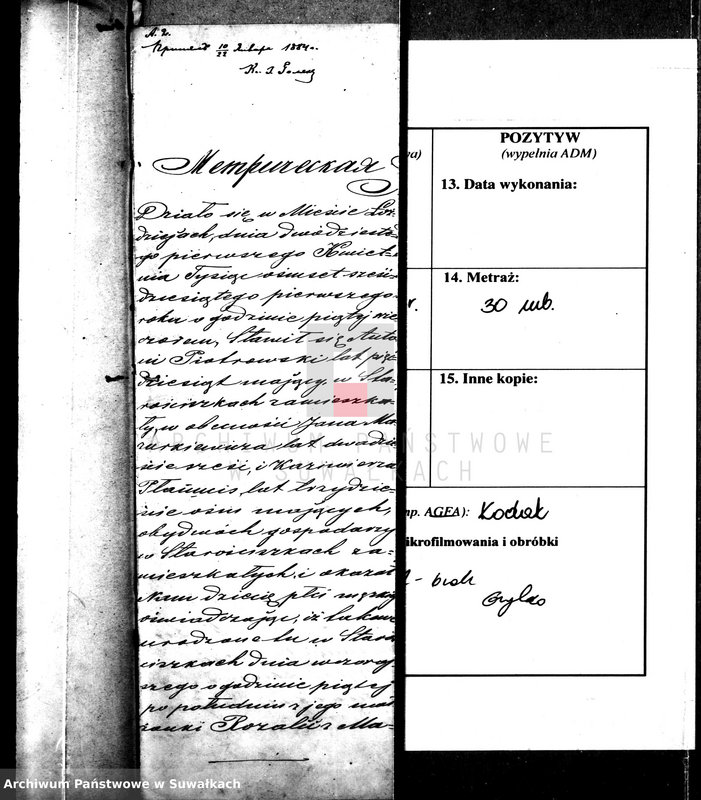 А. 2.
10/22 Января 1884 г.
Метрическая
Działo się w Mieście Ło-
dziejach, dnia dwudzieste-
go pierwszego Kwiet-
nia Tysiąc ośmset sześć-
dziesiątego pierwszego
roku o godzinie piątej wie-
czorem, Stawił się Anto-
ni Piotrowski lat pięć-
dziesiąt mający w Sta-
rociszkach zamieszka-
ły, w obecności Jana Ma-
zurkiewicza lat dwadzie
ścia sześć, i Kazimierza
lat trzydzie-
ście ośm mających,
obydwóch gospodarzy
w Starociszkach za-
mieszkałych, i okazał
Nam dziecię płci męzkiej
oświadczając, iż takowe
urodzone tu w Staro
ciszkach dnia wczoraj-
szego o godzinie piątej
po południu z jego mał
żonki Rozalii z Ma-
POZYTYW
(wypełnia ADM)
13. Data wykonania:
14. Metraż:
30 mb.
15. Inne kopie:
np. AGFA): Kodak
mikrofilmowania i obróbki
ARCHIWUM PAŃSTWOWE
W SUWAŁKACH
Archiwum Państwowe w Suwałkach